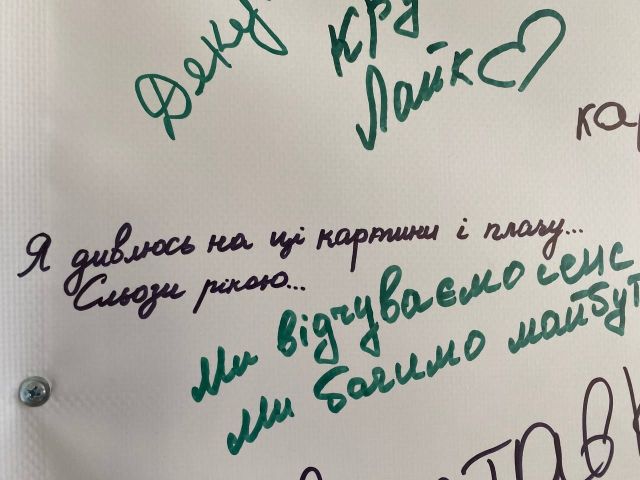 Дяку
Кру
Лайк
ка
Я дивлюсь на ці картини і плачу...
Сльози рікою...
Ми відчуваємо сенс
Ми бачимо майбут